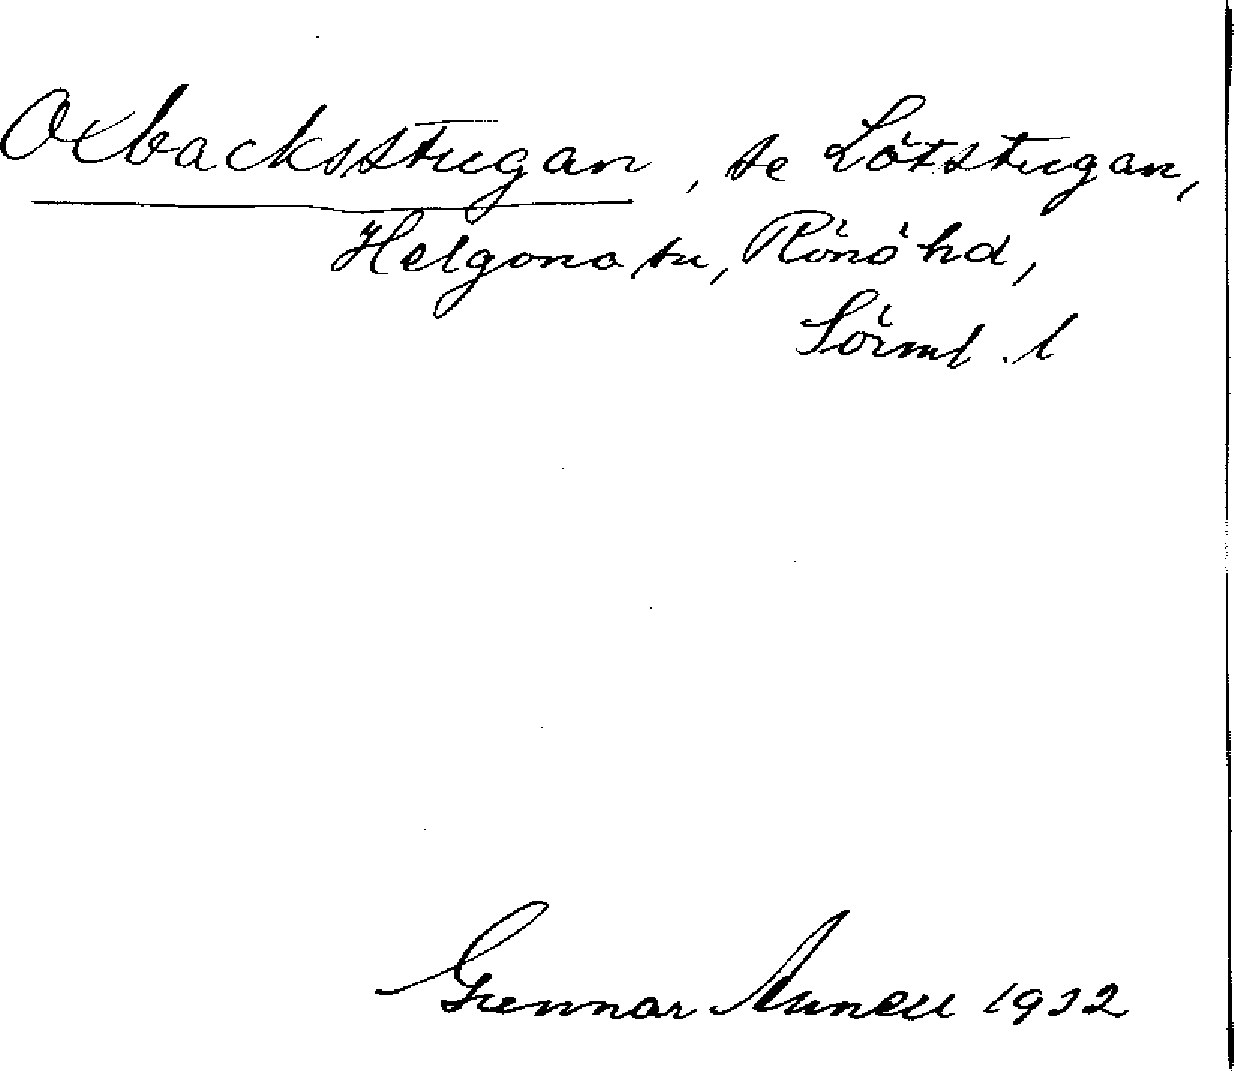 Oxbacksstugan, se Lötstugan,
Helgona sn, Rönö hd,
Sörml. l
Gunnar 1932